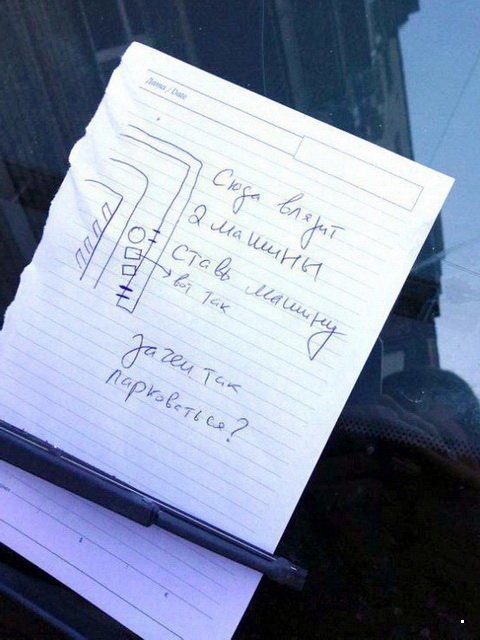 Дата / Date
Сюда влязит
2 машины
ставь машину
вот так
Зачем так
парковаться?